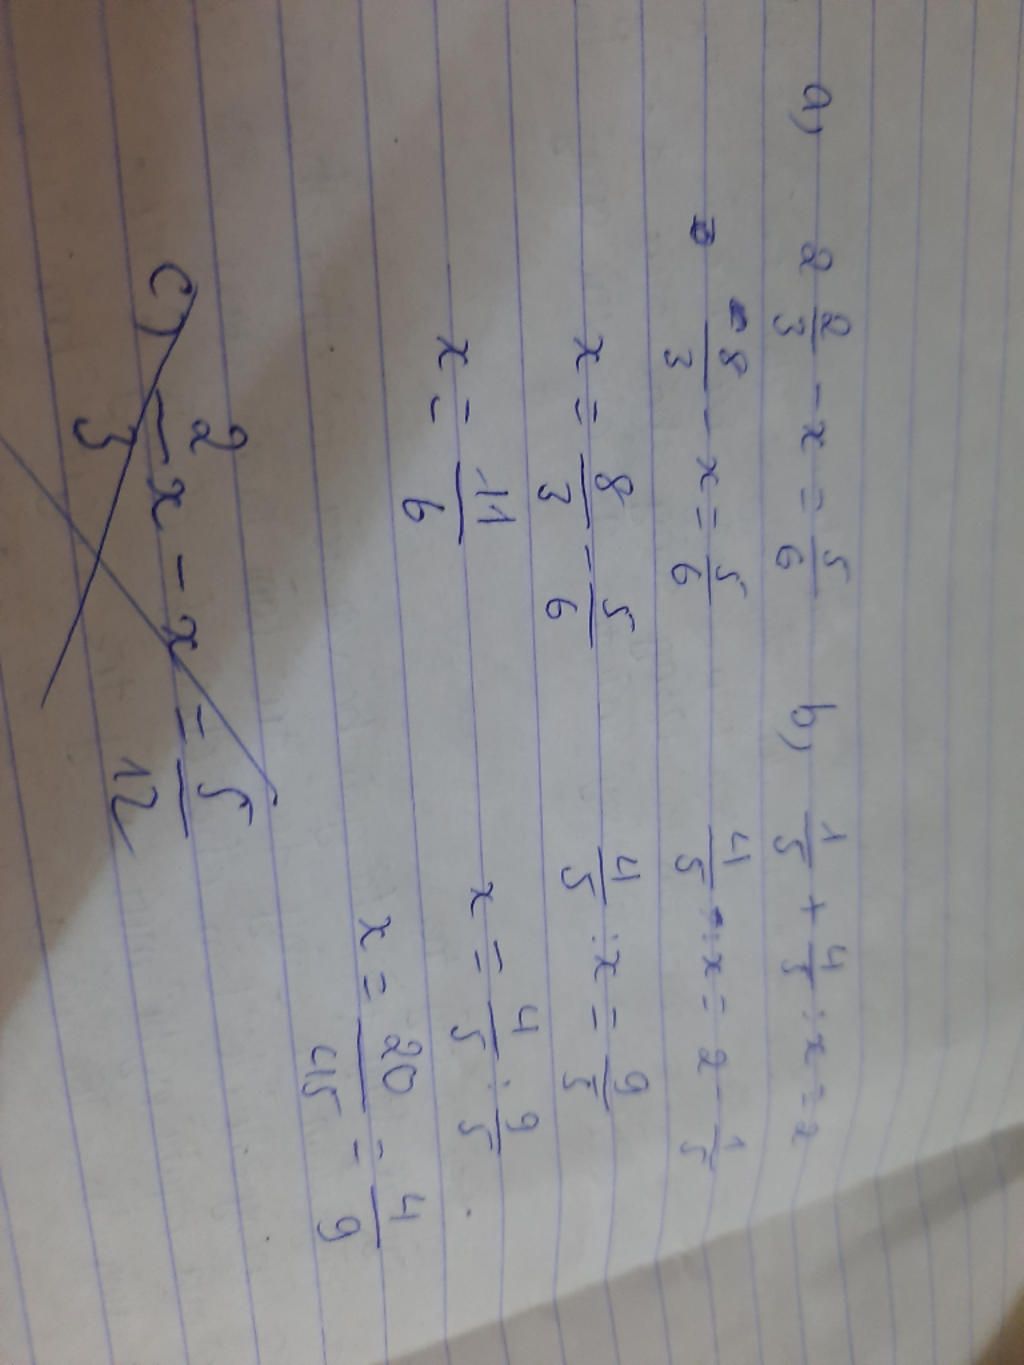 a) 2 2/3 - x = 5/6
8/3 - x = 5/6
x = 8/3 - 5/6
x = 11/6
b) 1/5 + 4/5 : x = 2
4/5 : x = 2 - 1/5
4/5 : x = 9/5
x = 4/5 : 9/5
x = 20/45 = 4/9
c) 2/3 x - x = 5/12